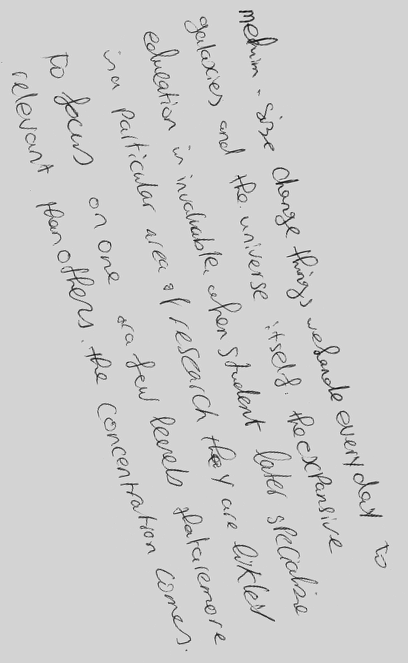 medium-size change things we hande every day to
galaxies and the universe itself. the expansive
education in invaluable. when student later specialize
in a particular area of research they are likley
to focus on one or a few levels that are more
relevant than others. the concentration comes.